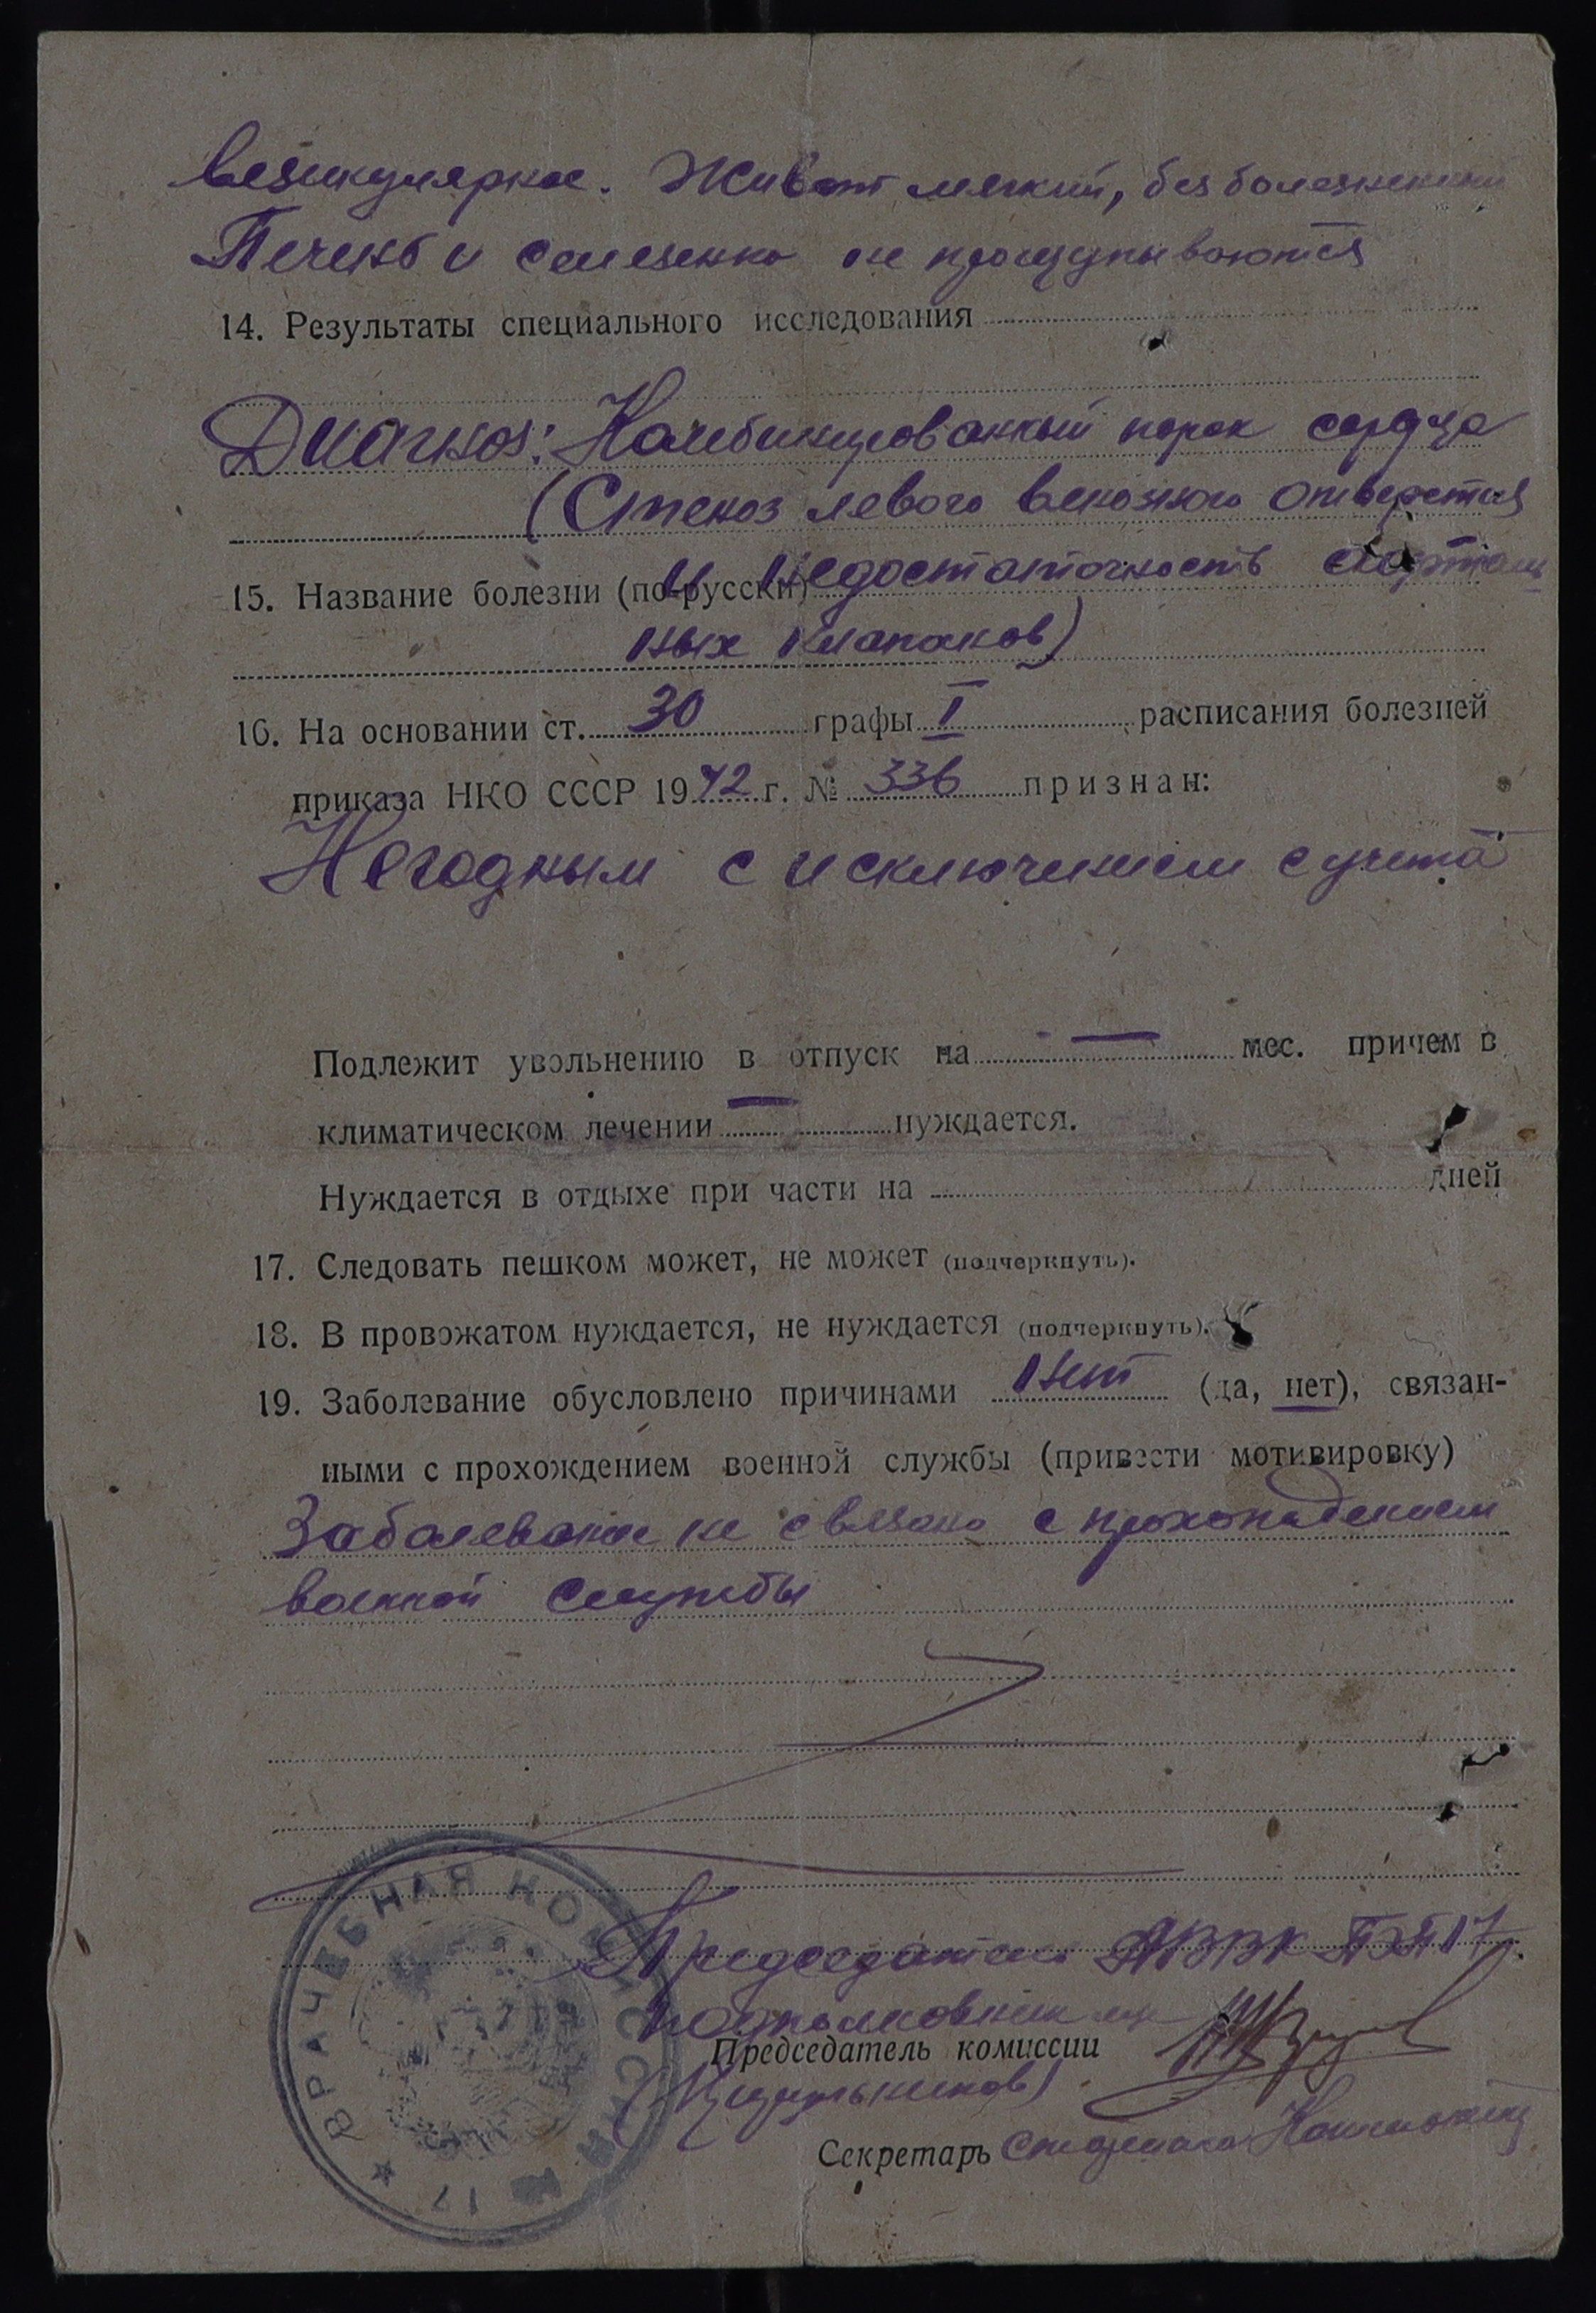 везикулярное. Живот мягкий, безболезненный
Печень и селезенка не прощупываются
14. Результаты специального исследования
Диагноз: Комбинированный порок сердца
(Стеноз левого венозного отверстия
и недостаточность аорталь
15. Название болезни (по-русски)
ных клапанов)
16. На основании ст. 30 графы I расписания болезней
приказа НКО СССР 1942 г. № 336 признан:
Негодным с исключением с учета
Подлежит увольнению в отпуск на — мес. причем в
климатическом лечении — нуждается.
Нуждается в отдыхе при части на дней
17. Следовать пешком может, не может (подчеркнуть).
18. В провожатом нуждается, не нуждается (подчеркнуть).
19. Заболевание обусловлено причинами нет (да, нет), связан-
ными с прохождением военной службы (привести мотивировку)
Заболевание не связано с прохождением
военной службы
Председатель ПЭП 17
подполковник
Председатель комиссии
Секретарь
ВРАЧЕБНАЯ КОМИССИЯ
17